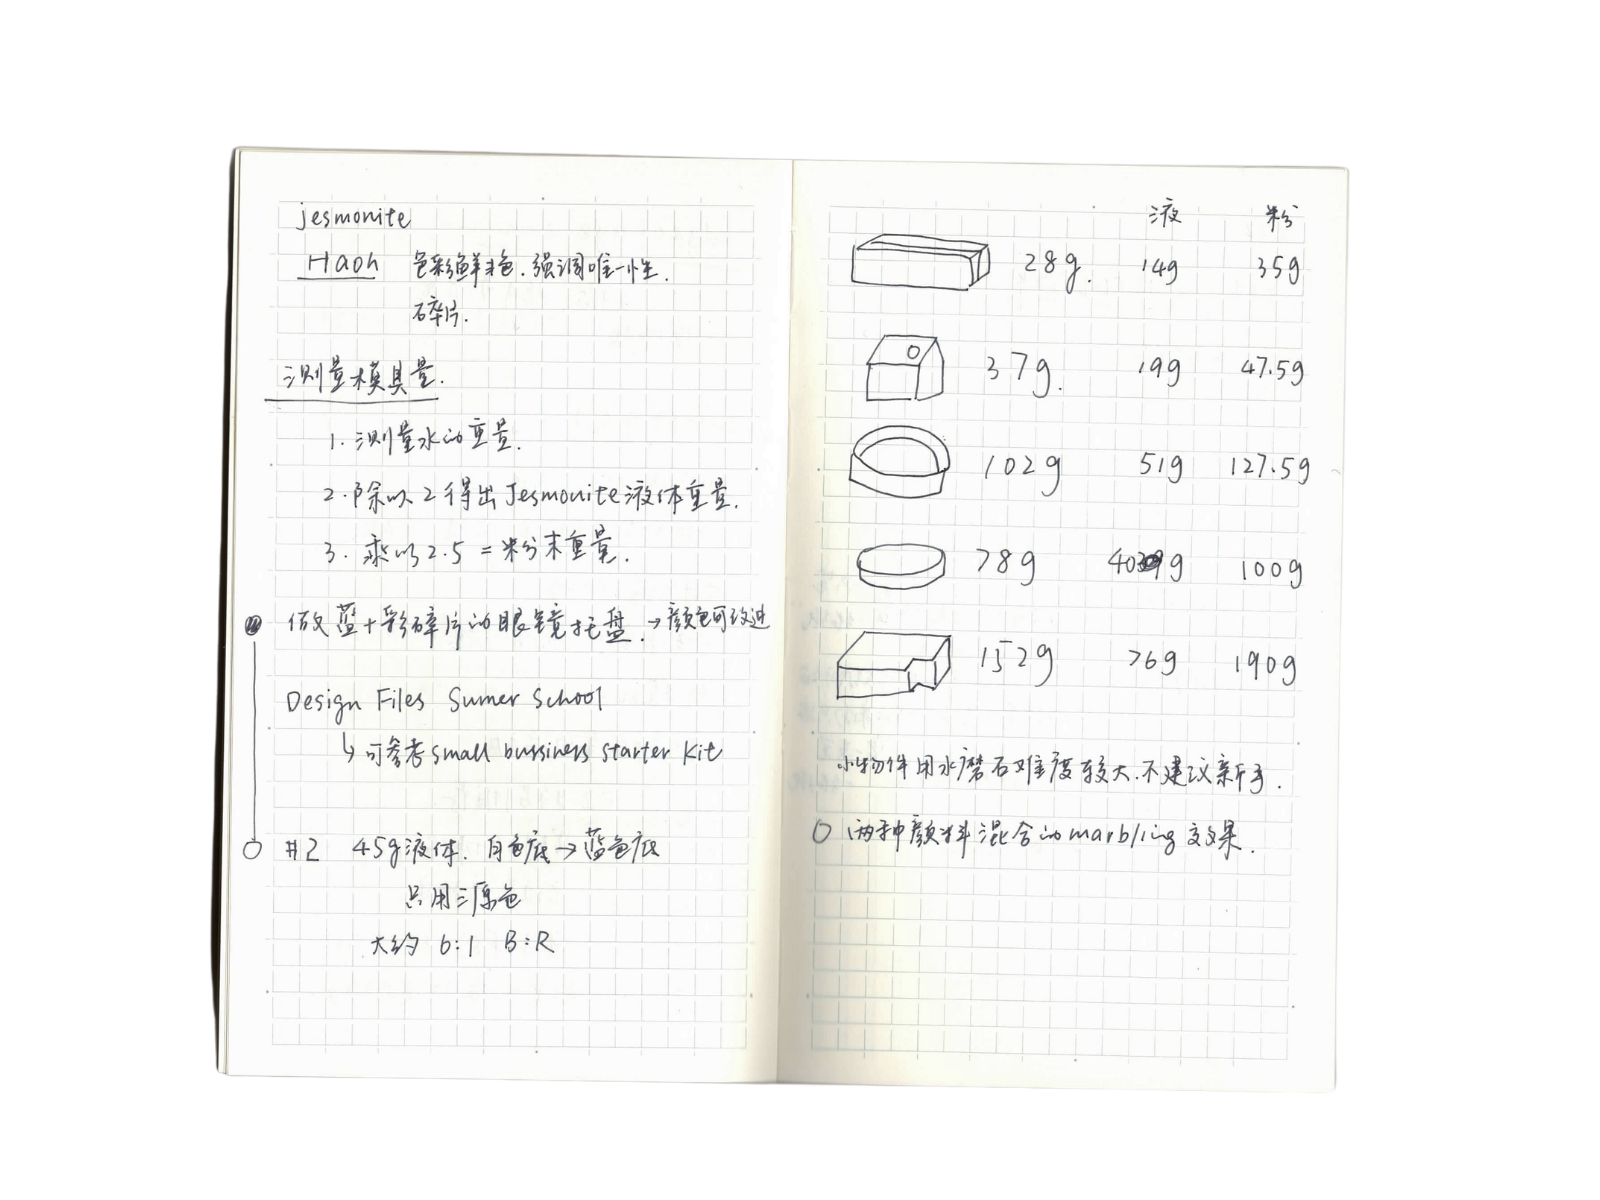 jesmonite
Haoh 色彩鲜艳.强调唯一性.
碎片.
测量模具量.
1.测量水的重量.
2.除以2得出Jesmonite液体重量.
3.乘以2.5=粉末重量.
做蓝+彩碎片的眼镜托盘.→颜色可改进
Design Files Sumer School
↳可参考small bussiness starter Kit
#2 45g液体.白色底→蓝色底
只用三原色
大约 6:1 B:R
液 粉
28g. 14g 35g
37g. 19g 47.5g
102g 51g 127.5g
78g 40g 100g
152g 76g 190g
小物件用水磨石难度较大.不建议新手.
两种颜料混合的marbling效果.